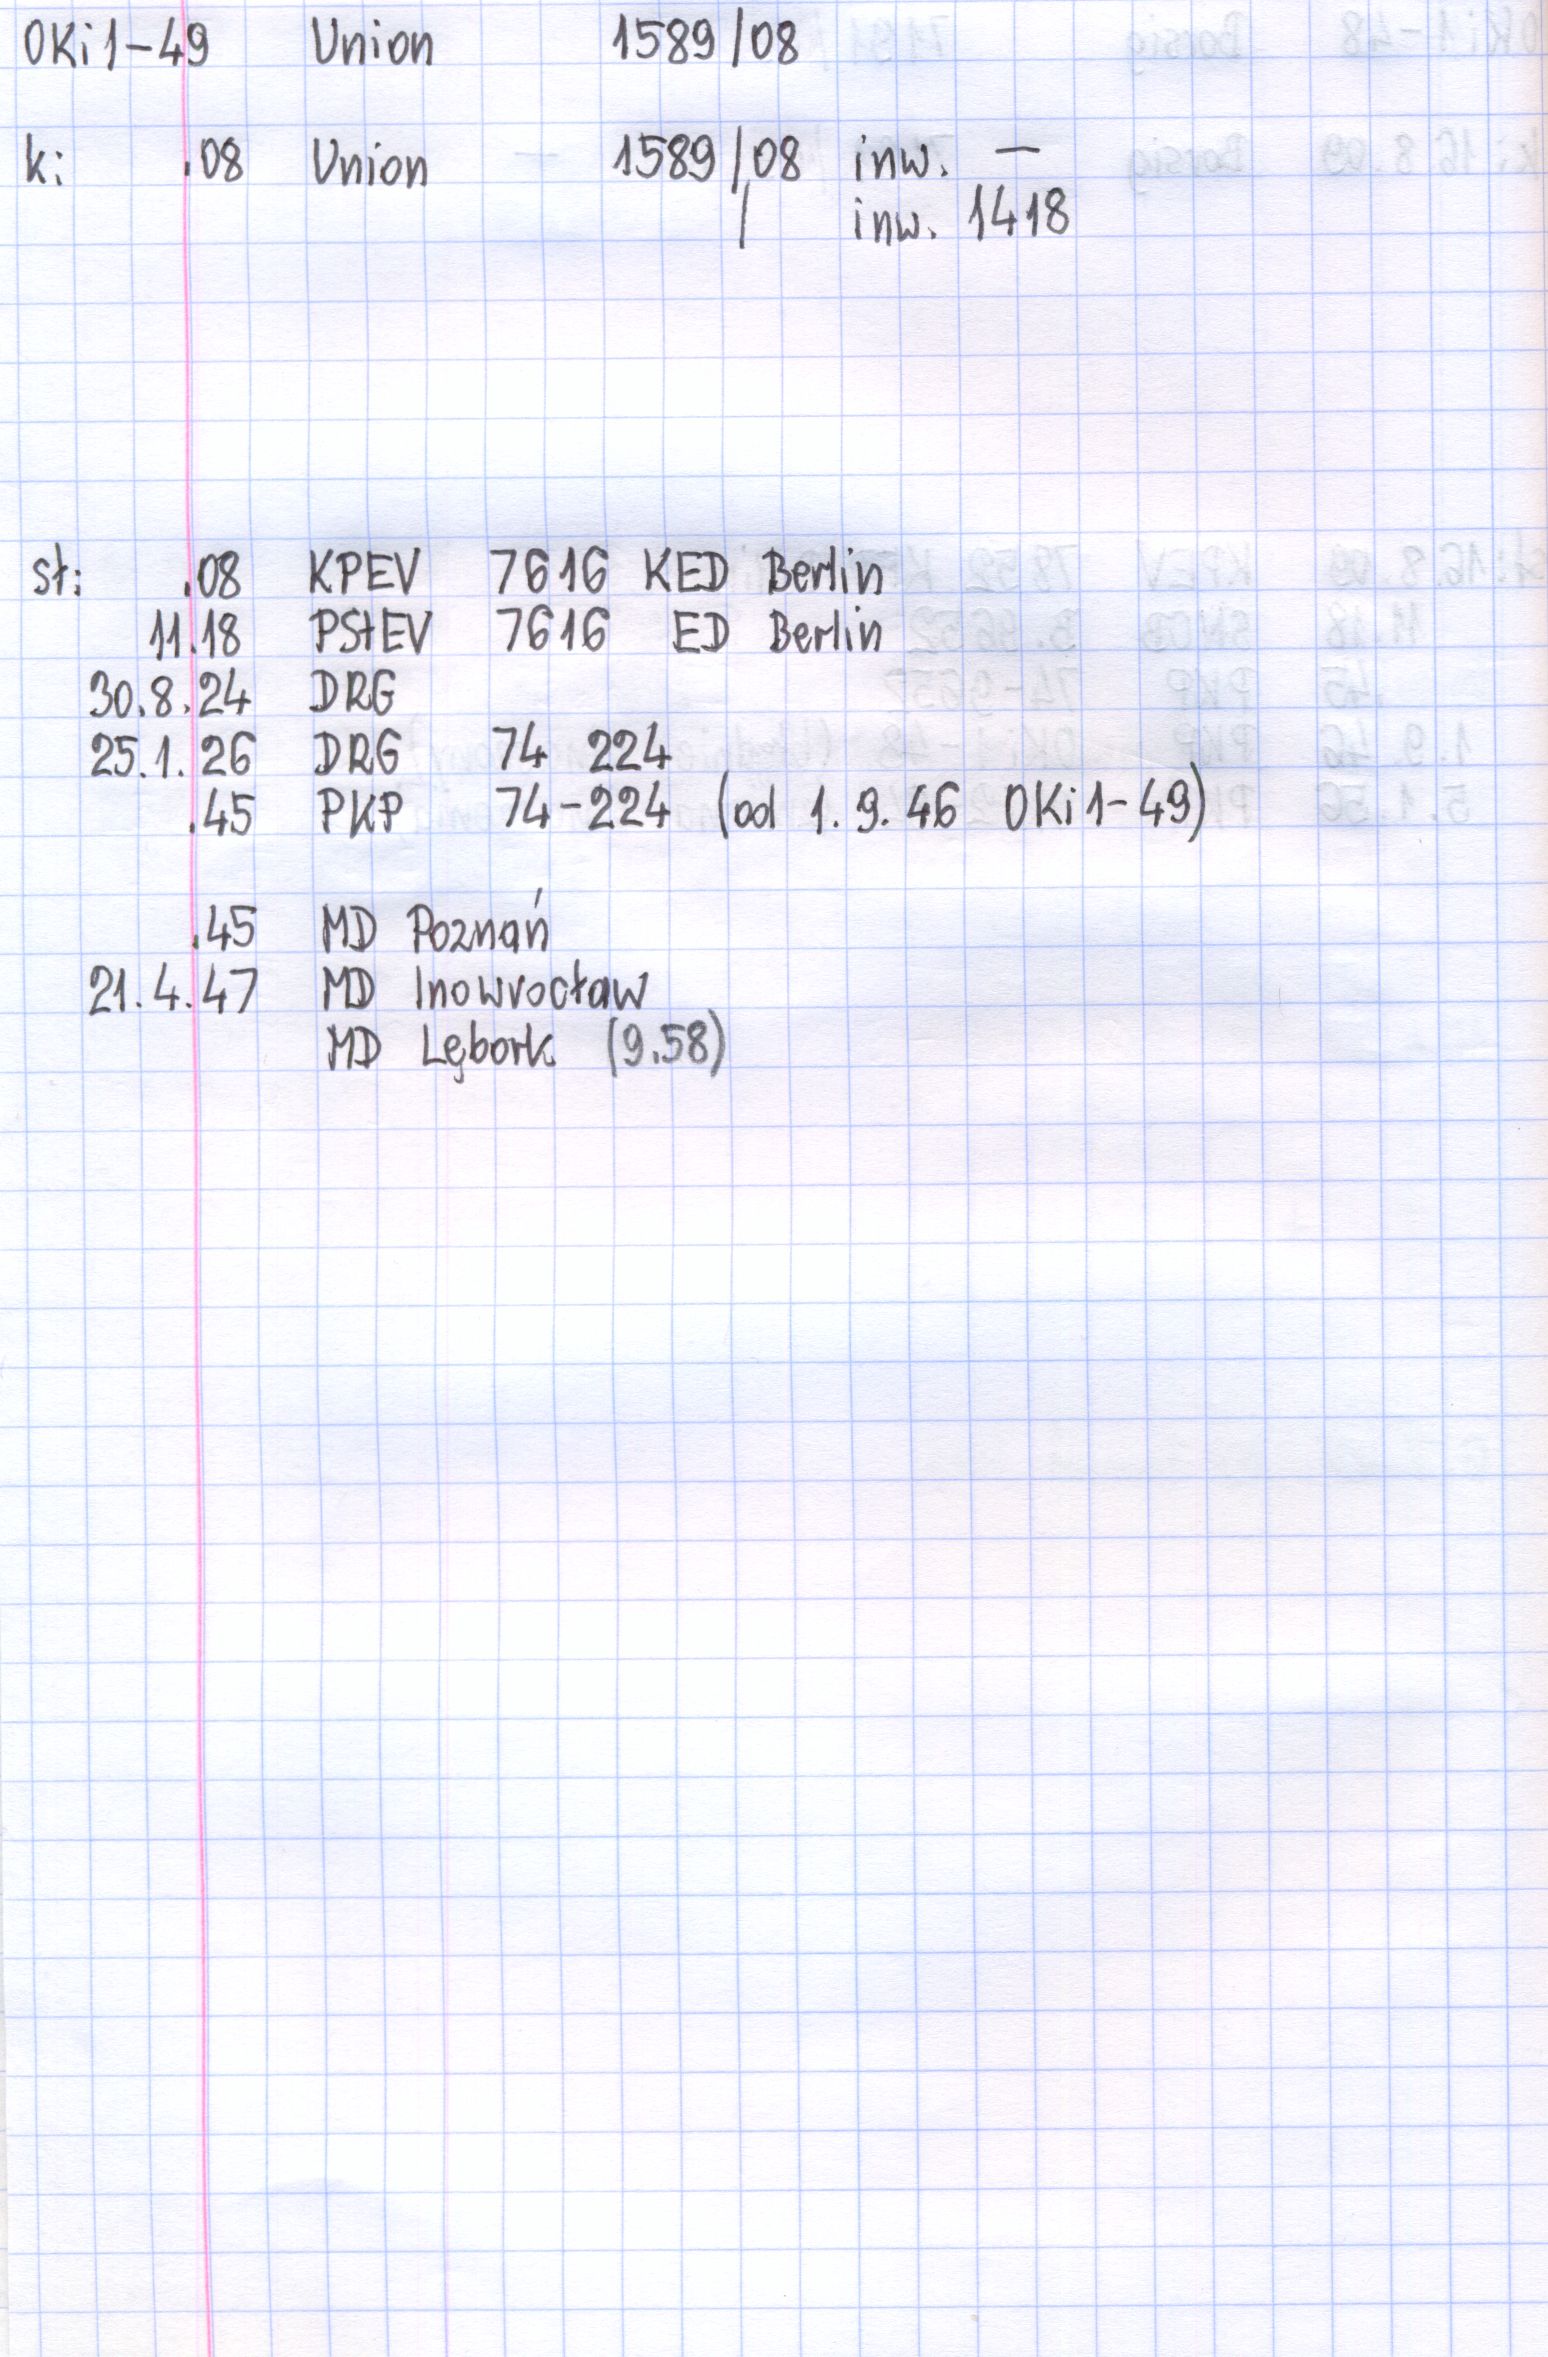 OKi1-49 Union 1589/08
k: .08 Union 1589/08 inw. —
/ inw. 1418
st: .08 KPEV 7616 KED Berlin
11.18 PStEV 7616 ED Berlin
30.8.24 DRG
25.1.26 DRG 74 224
.45 PKP 74-224 (od 1.9.46 OKi1-49)
.45 MD Poznań
21.4.47 MD Inowrocław
MD Lębork (9.58)